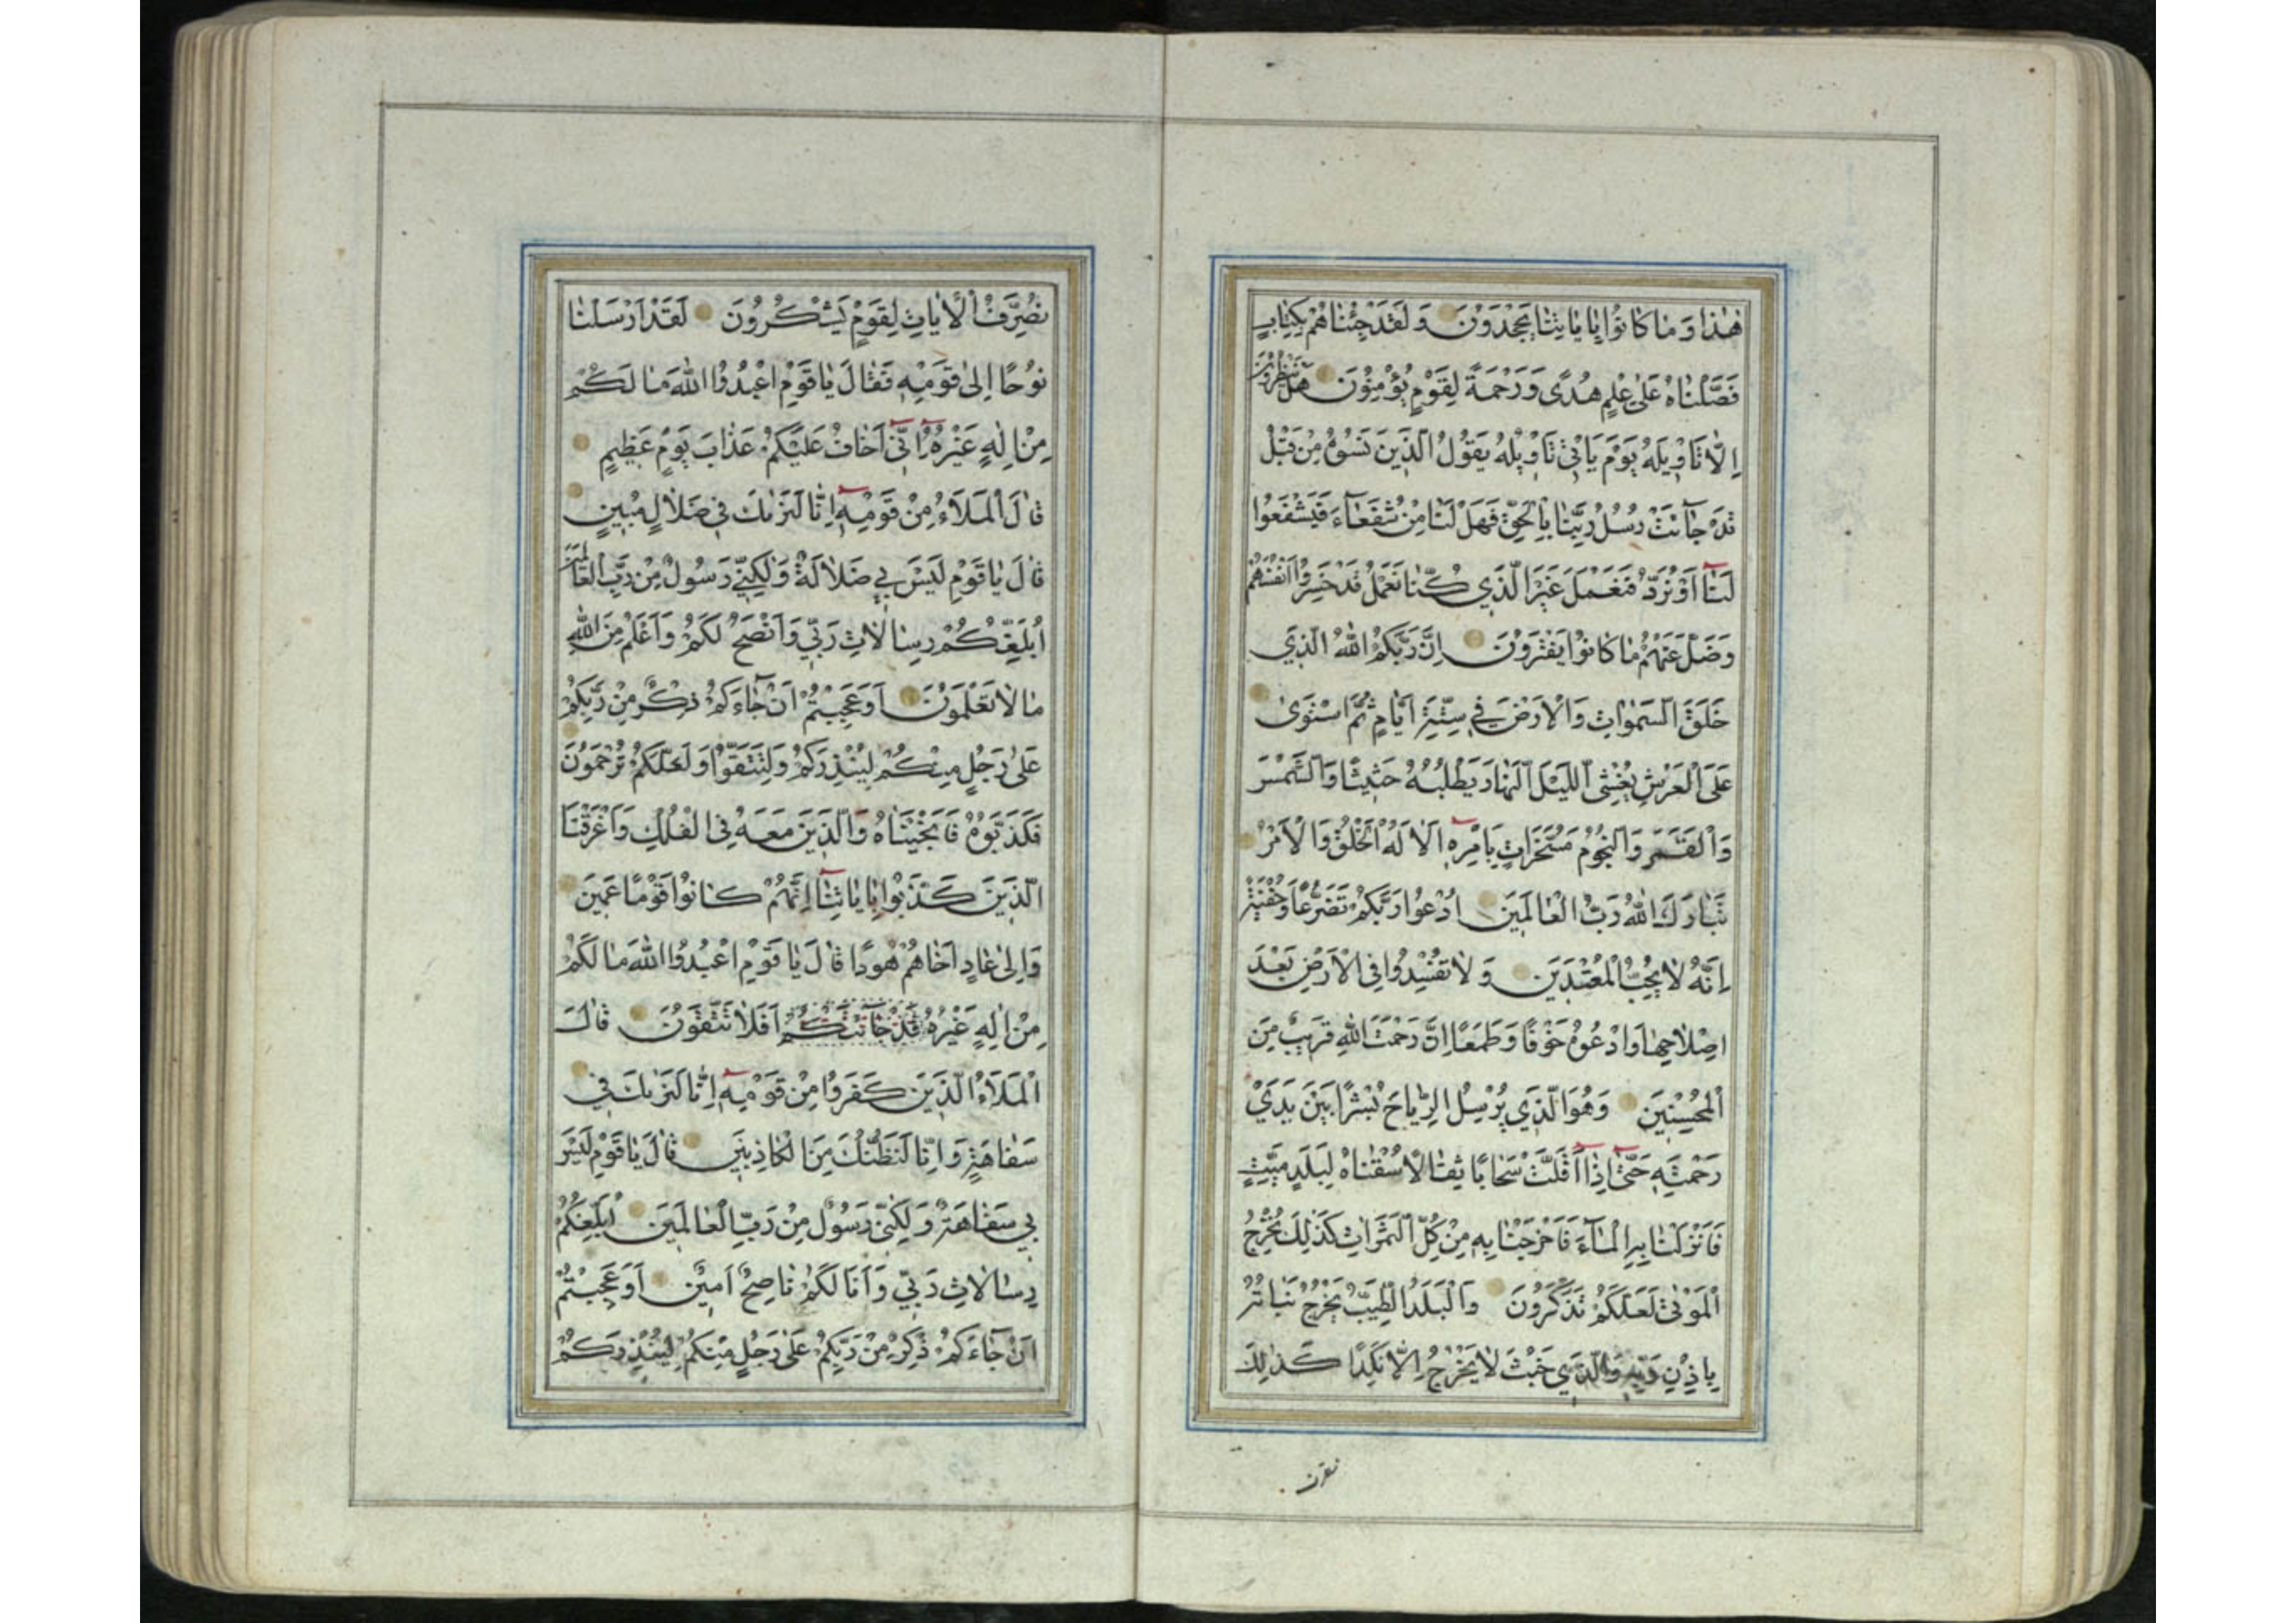 هٰذَا وَمَا كَانُوا بِاٰيَاتِنَا يَجْحَدُونَ وَلَقَدْ جِئْنَاهُمْ بِكِتَابٍ
فَصَّلْنَاهُ عَلٰى عِلْمٍ هُدًى وَرَحْمَةً لِقَوْمٍ يُؤْمِنُونَ هَلْ يَنْظُرُونَ
اِلَّا تَأْوِيلَهُ يَوْمَ يَأْتِي تَأْوِيلُهُ يَقُولُ الَّذِينَ نَسُوهُ مِنْ قَبْلُ
قَدْ جَآئَتْ رُسُلُ رَبِّنَا بِالْحَقِّ فَهَلْ لَنَا مِنْ شُفَعَآءَ فَيَشْفَعُوا
لَنَآ اَوْ نُرَدُّ فَنَعْمَلَ غَيْرَ الَّذِي كُنَّا نَعْمَلُ قَدْ خَسِرُوا اَنْفُسَهُمْ
وَضَلَّ عَنْهُمْ مَا كَانُوا يَفْتَرُونَ اِنَّ رَبَّكُمُ اللّٰهُ الَّذِي
خَلَقَ السَّمٰوَاتِ وَالْاَرْضَ فِي سِتَّةِ اَيَّامٍ ثُمَّ اسْتَوٰى
عَلَى الْعَرْشِ يُغْشِي اللَّيْلَ النَّهَارَ يَطْلُبُهُ حَثِيثًا وَالشَّمْسَ
وَالْقَمَرَ وَالنُّجُومَ مُسَخَّرَاتٍ بِاَمْرِهِ اَلَا لَهُ الْخَلْقُ وَالْاَمْرُ
تَبَارَكَ اللّٰهُ رَبُّ الْعَالَمِينَ اُدْعُوا رَبَّكُمْ تَضَرُّعًا وَخُفْيَةً
اِنَّهُ لَا يُحِبُّ الْمُعْتَدِينَ وَلَا تُفْسِدُوا فِي الْاَرْضِ بَعْدَ
اِصْلَاحِهَا وَادْعُوهُ خَوْفًا وَطَمَعًا اِنَّ رَحْمَتَ اللّٰهِ قَرِيبٌ مِنَ
الْمُحْسِنِينَ وَهُوَ الَّذِي يُرْسِلُ الرِّيَاحَ بُشْرًا بَيْنَ يَدَيْ
رَحْمَتِهِ حَتّٰى اِذَآ اَقَلَّتْ سَحَابًا ثِقَالًا سُقْنَاهُ لِبَلَدٍ مَيِّتٍ
فَاَنْزَلْنَا بِهِ الْمَآءَ فَاَخْرَجْنَا بِهِ مِنْ كُلِّ الثَّمَرَاتِ كَذٰلِكَ نُخْرِجُ
الْمَوْتٰى لَعَلَّكُمْ تَذَكَّرُونَ وَالْبَلَدُ الطَّيِّبُ يَخْرُجُ نَبَاتُهُ
بِاِذْنِ رَبِّهِ وَالَّذِي خَبُثَ لَا يَخْرُجُ اِلَّا نَكِدًا كَذٰلِكَ
نصرف
نُصَرِّفُ الْاٰيَاتِ لِقَوْمٍ يَشْكُرُونَ لَقَدْ اَرْسَلْنَا
نُوحًا اِلٰى قَوْمِهِ فَقَالَ يَا قَوْمِ اعْبُدُوا اللّٰهَ مَا لَكُمْ
مِنْ اِلٰهٍ غَيْرُهُ اِنِّي اَخَافُ عَلَيْكُمْ عَذَابَ يَوْمٍ عَظِيمٍ
قَالَ الْمَلَاُ مِنْ قَوْمِهِ اِنَّا لَنَرٰيكَ فِي ضَلَالٍ مُبِينٍ
قَالَ يَا قَوْمِ لَيْسَ بِي ضَلَالَةٌ وَلٰكِنِّي رَسُولٌ مِنْ رَبِّ الْعَالَمِينَ
اُبَلِّغُكُمْ رِسَالَاتِ رَبِّي وَاَنْصَحُ لَكُمْ وَاَعْلَمُ مِنَ اللّٰهِ
مَا لَا تَعْلَمُونَ اَوَعَجِبْتُمْ اَنْ جَآءَكُمْ ذِكْرٌ مِنْ رَبِّكُمْ
عَلٰى رَجُلٍ مِنْكُمْ لِيُنْذِرَكُمْ وَلِتَتَّقُوا وَلَعَلَّكُمْ تُرْحَمُونَ
فَكَذَّبُوهُ فَاَنْجَيْنَاهُ وَالَّذِينَ مَعَهُ فِي الْفُلْكِ وَاَغْرَقْنَا
الَّذِينَ كَذَّبُوا بِاٰيَاتِنَآ اِنَّهُمْ كَانُوا قَوْمًا عَمِينَ
وَاِلٰى عَادٍ اَخَاهُمْ هُودًا قَالَ يَا قَوْمِ اعْبُدُوا اللّٰهَ مَا لَكُمْ
مِنْ اِلٰهٍ غَيْرُهُ قَدْ جَآئَتْكُمْ اَفَلَا تَتَّقُونَ قَالَ
الْمَلَاُ الَّذِينَ كَفَرُوا مِنْ قَوْمِهِ اِنَّا لَنَرٰيكَ فِي
سَفَاهَةٍ وَاِنَّا لَنَظُنُّكَ مِنَ الْكَاذِبِينَ قَالَ يَا قَوْمِ لَيْسَ
بِي سَفَاهَةٌ وَلٰكِنِّي رَسُولٌ مِنْ رَبِّ الْعَالَمِينَ اُبَلِّغُكُمْ
رِسَالَاتِ رَبِّي وَاَنَا لَكُمْ نَاصِحٌ اَمِينٌ اَوَعَجِبْتُمْ
اَنْ جَآءَكُمْ ذِكْرٌ مِنْ رَبِّكُمْ عَلٰى رَجُلٍ مِنْكُمْ لِيُنْذِرَكُمْ